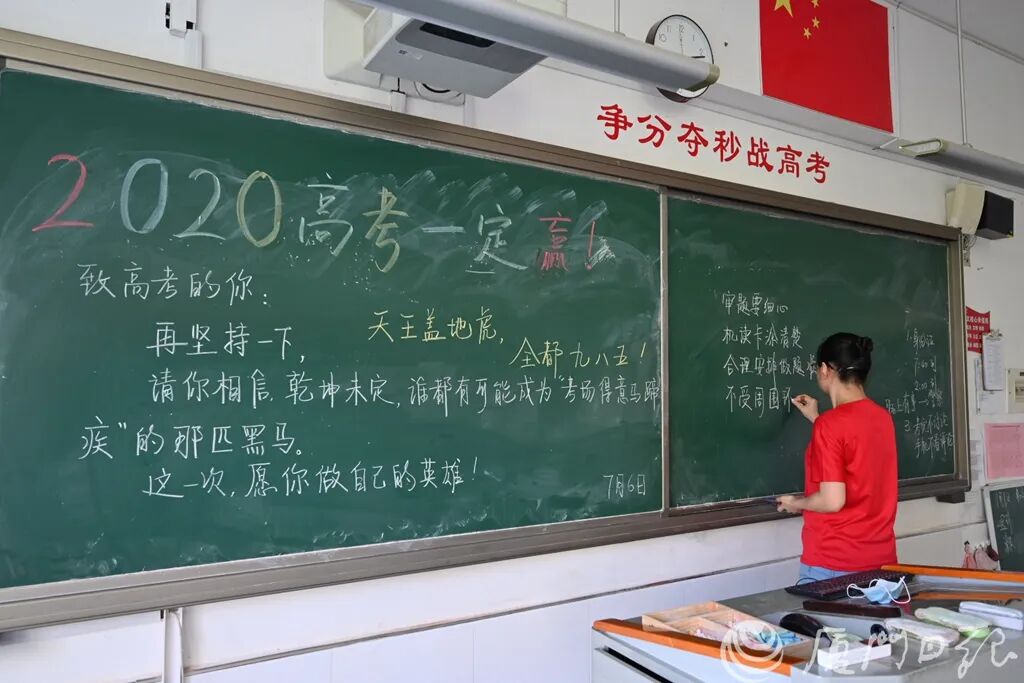 争分夺秒战高考
2020高考一定赢！
致高考的你：
再坚持一下，
天王盖地虎，
全都九八五！
请你相信，乾坤未定，谁都有可能成为“考场得意马蹄
疾”的那匹黑马。
这一次，愿你做自己的英雄！
7月6日
审题要细心
机读卡涂清楚
合理安排做题
不受周围
厦门日报